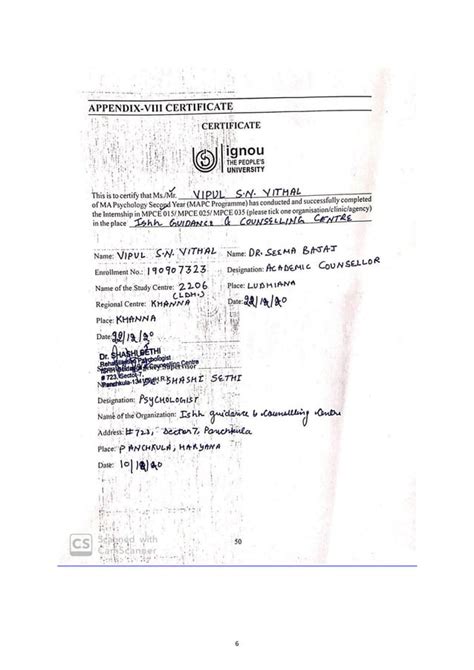 APPENDIX-VIII CERTIFICATE
CERTIFICATE
ignou
THE PEOPLE'S
UNIVERSITY
This is to certify that Ms./Mr. VIPUL S.N. VITHAL
of MA Psychology Second Year (MAPC Programme) has conducted and successfully completed
the Internship in MPCE 015/ MPCE 025/ MPCE 035 (please tick one organisation/clinic/agency)
in the place Ishh GUIDANCE & COUNSELLING CENTRE
Name: VIPUL S.N. VITHAL Name: DR. SEEMA BAJAJ
Enrollment No.: 190907323 Designation: ACADEMIC COUNSELLOR
Name of the Study Centre: 2206 Place: LUDHIANA
(LDH.)
Regional Centre: KHANNA Date: 22/12/20
Place: KHANNA
Date: 22/12/20
Dr. SHASHI SETHI
Counselling Centre
# 723, Sector-7,
Panchkula-134
DR. SHASHI SETHI
Designation: PSYCHOLOGIST
Name of the Organization: Ishh guidance & counselling centre
Address: # 723, Sector 7, Panchkula
Place: PANCHKULA, HARYANA
Date: 10/12/20
CS Scanned with
CamScanner
50
6